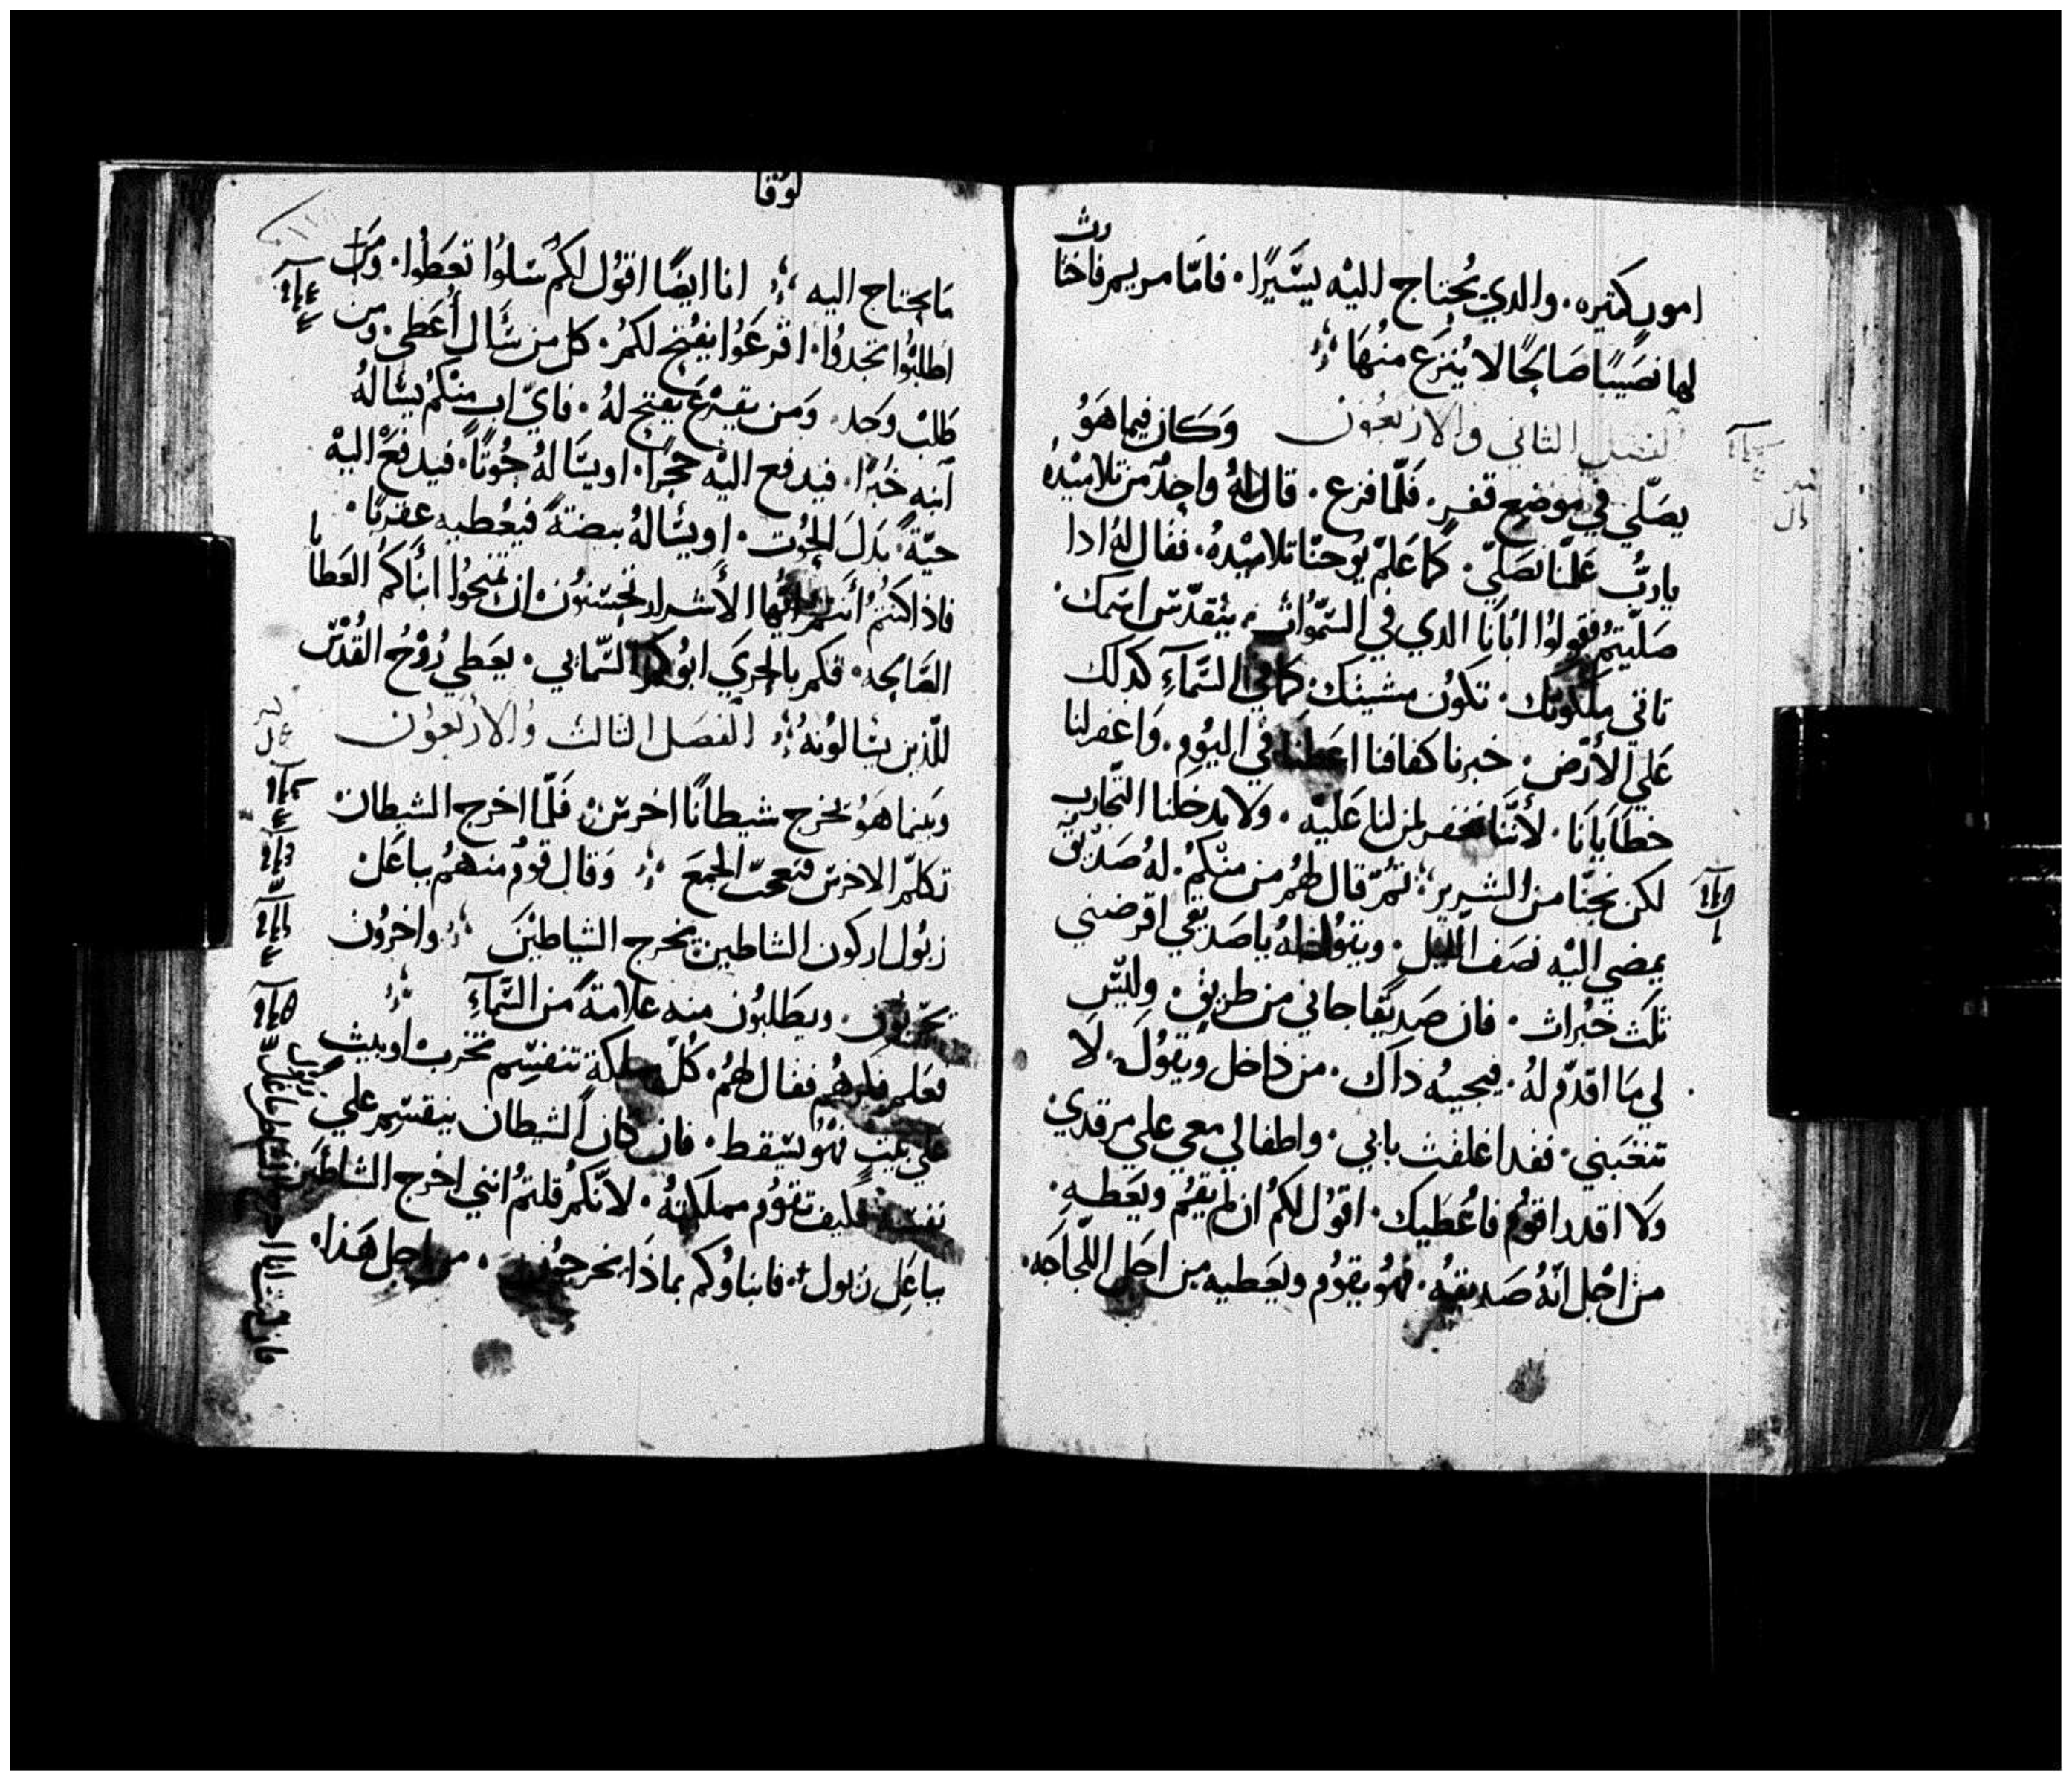 امور كثيره. والدي يُحتاج اليْه يسَيرًا. فامّا مريم فاختارت
لها نصَيبًا صَالحًا لا يُنزع منْهَا
الفصل الثاني والاربعُون وَكان فيما هَوُ
يصَلّي في موضع قفرٍ. فلمّا فرغ. قال لهُ واحدٌ من تلاميْدهُ
ياربُّ عَلّمنا نصَلّي. كما عَلّم يُوحنّا تلاميْدهُ. فقال لهُم ادا
صَليّتمُ فقولوُا ابُانا الدي في السَمّواتِ. يتقدّسَ اسَمك.
تاتي ملكوتك. تكوُن مشيتك. كما في السَمّآءِ كدلك
عَلي الأرْض. خبزنا كفافنا اعَطنا في اليوُمِ. وَاعفر لنا
خطايانا. لأننَّا نغفر لمن لنا عَليْه. ولا يدخلنا التّجارب
لكن نجّنا من الشرير، ثمُّ قال لهُم من منْكمُ. لهُ صَديْق
يمضي اليْه نصَف الّليل. ويقوُل لهُ ياصَديْقي اقرضني
ثلثَ خبُزات. فان صَديْقا جاني من طريْق. وليْسَ
لي مَا اقدّم لهُ. فيجيبهُ داك. من داخل ويقوُل. لَا
تتعَبني. فقد اغلقت بابي. واطفالي معي علي مرقدي
وَلا اقدر اقوُم فاعُطيك. اقوُل لكمُ ان لم يقُم ويعَطهِ.
من اجْل انّهُ صَديقهُ. فهُو يقوُم ويعَطيه من اجَل اللّجاجَه.
لوُقا
مَا يحتاج اليه. انا ايضًا اقوُل لكمُ سَلوُا تعَطوُا.
اطلبُوا تجدوُا. اقرعَوُا يفُتح لكمُ. كل من سَأل أُعَطي. ومن
طلبَ وَجد. وَمن يقرَع يفتح لهُ. فايّ ابٍ منْكمُ يسَألهُ
ابنه خبزًا. فيدفع اليْه حجرًا. او يسَألهُ حُوتًا. فيدفعْ اليْه
حيّةً. بَدلَ الحُوت. او يسَألهُ بيضةً فيعُطيه عقربًا.
فاذا كنتمُ أنتمُ ايّها الأشرار تحسَنوُن ان تمنحوُا ابنأكمُ العَطايا
الصَالحه. فكم بالحري ابوُكمُ السَمّايي. يعَطي رُوْحُ القُدْسَ
للّذين يسَألونهُ الفصَل الثالث والأربعُون
وبَينما هَوُ يخرج شيطانًا اخرسَ. فَلمّا اخرج الشيطان
تكلمّ الاخرسَ فتعجبّ الجمعَ. وَقال قومُ منهمُ بباعَل
زبوُل اركون الشاطين يخرج الشياطيْنَ. واخروُن
يجرّبون. ويطَلبوُن منه علامةً من السَمّآءِ
فعَلم فكرهُم فقال لهُم. كلُّ مملكةٍ تنقسَم تخرب او بيت
عَلي بيْتٍ فهُو يسَقط. فان كان الشيطان ينقسَم علي
نفسَه فكيف تقوُم مملكتهُ. لأنّكمُ قلتمُ انني اخرج الشاطين
بباعَل زبول. فابناوُكم بماذَا يخرجوُن. من اجل هَذا.